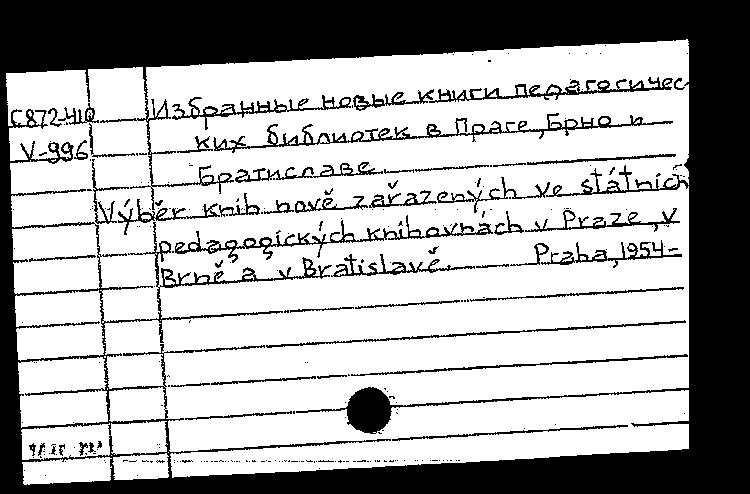 С872-410 Избранные новые книги педагогичес
V-996 ких библиотек в Праге, Брно и
Братиславе.
Výběr knih nově zařazených ve státních
pedagogických knihovnách v Praze, v
Brně a v Bratislavě. Praha, 1954-